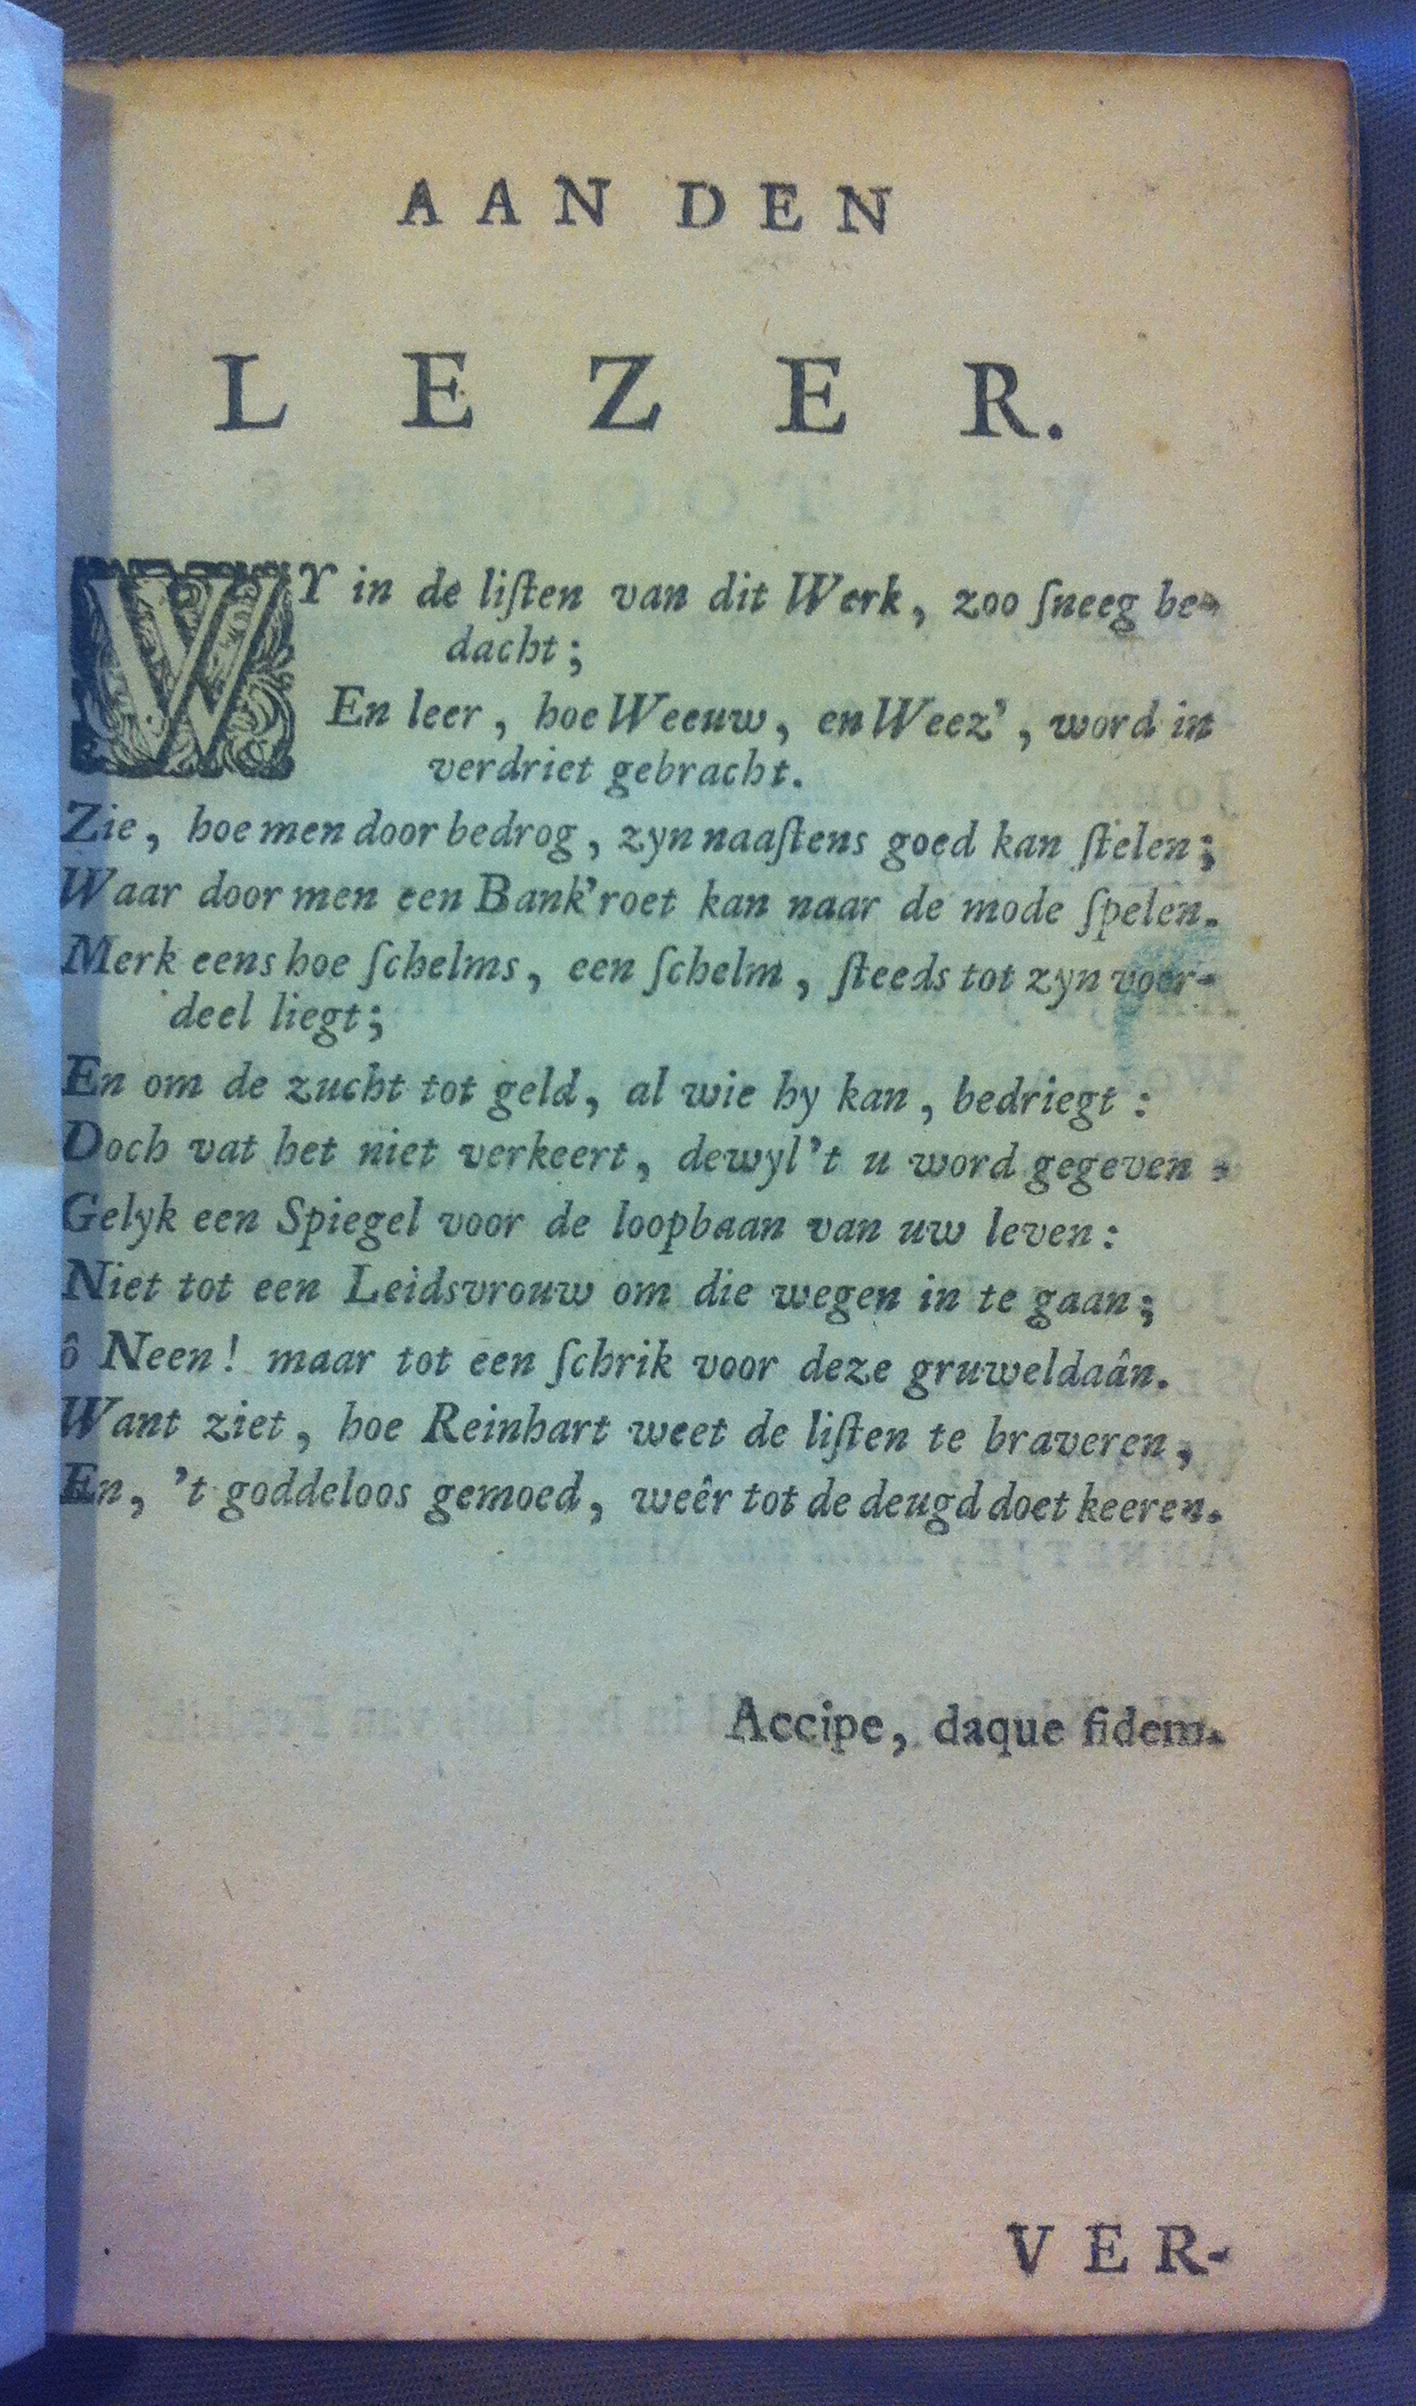 AAN DEN
LEZER.
WY in de liſten van dit Werk, zoo ſneeg be-
dacht;
En leer, hoe Weeuw, en Weez', word in
verdriet gebracht.
Zie, hoe men door bedrog, zyn naaſtens goed kan ſtelen;
Waar door men een Bank'roet kan naar de mode ſpelen.
Merk eens hoe ſchelms, een ſchelm, ſteeds tot zyn voor-
deel liegt;
En om de zucht tot geld, al wie hy kan, bedriegt:
Doch vat het niet verkeert, dewyl't u word gegeven
Gelyk een Spiegel voor de loopbaan van uw leven:
Niet tot een Leidsvrouw om die wegen in te gaan;
ô Neen! maar tot een ſchrik voor deze gruweldaân.
Want ziet, hoe Reinhart weet de liſten te braveren,
En, 't goddeloos gemoed, weêr tot de deugd doet keeren.
Accipe, daque fidem.
VER-